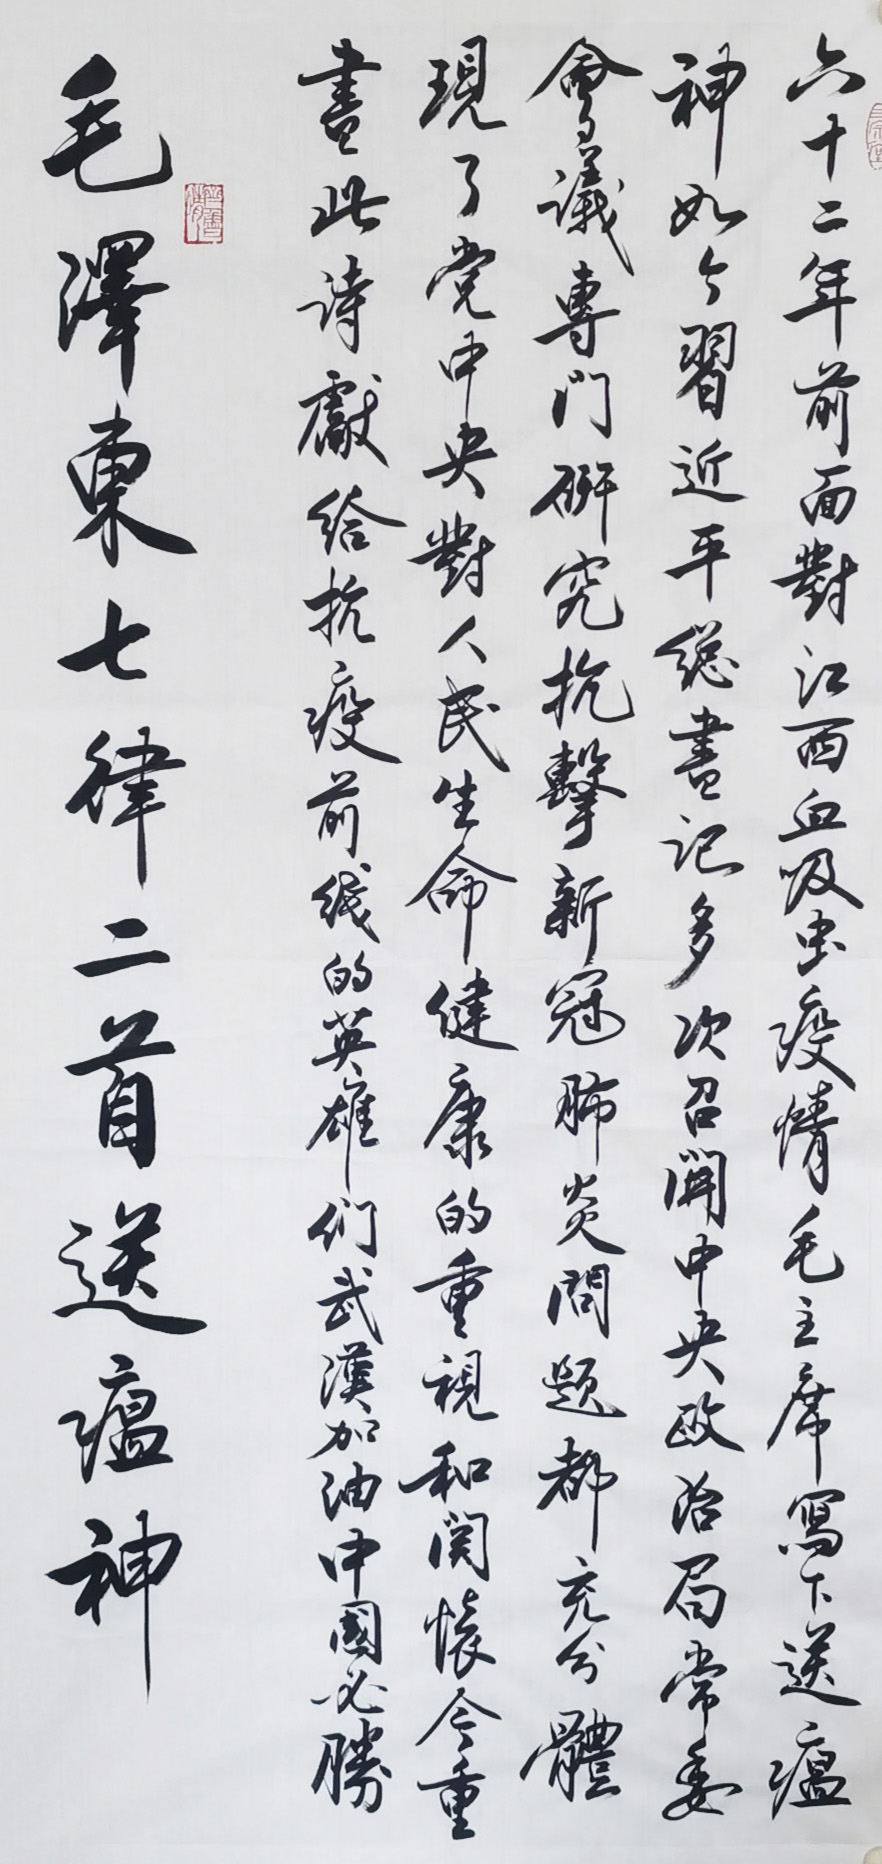 六十二年前面對江西血吸虫疫情毛主席寫下送瘟
神如今習近平總書記多次召開中央政治局常委
會議專門研究抗擊新冠肺炎問题都充分體
現了党中央對人民生命健康的重視和関懷今重
書此诗獻给抗疫前线的英雄们武漢加油中國必勝
毛澤東七律二首送瘟神